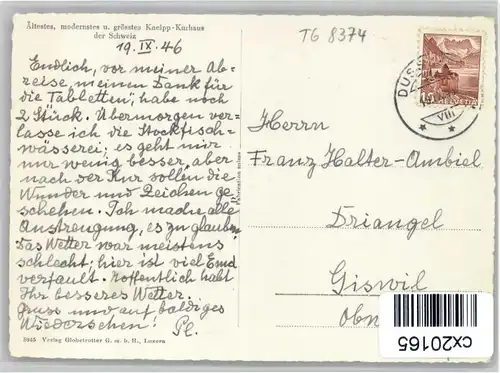 Ältestes, modernstes u. grösstes Kneipp-Kurhaus
der Schweiz
19. IX. 46
Endlich, vor meiner Ab=
reise, meinen Dank für
die Tabletten", habe noch
2 Stück. Übermorgen ver=
lasse ich die Stockfisch=
wässerei; es geht mir
nur wenig besser, aber
nach der Kur sollen die
Wunder und Zeichen ge
schehen. Ich mache alle
Anstrengung, es zu glauben
Das Wetter war meistens
schlecht; hier ist viel Emd
verfault. Hoffentlich habt
Ihr besseres Wetter.
Gruss und auf baldiges
Wiedersehen! Pl.
8845 Verlag Globetrotter G. m. b. H., Luzern
Fabrication suisse
TG 8374
HELVETIA
DUSS
VIII
Herrn
Franz Halter-Ambiel
Driangel
Giswil
Obw
cx20165